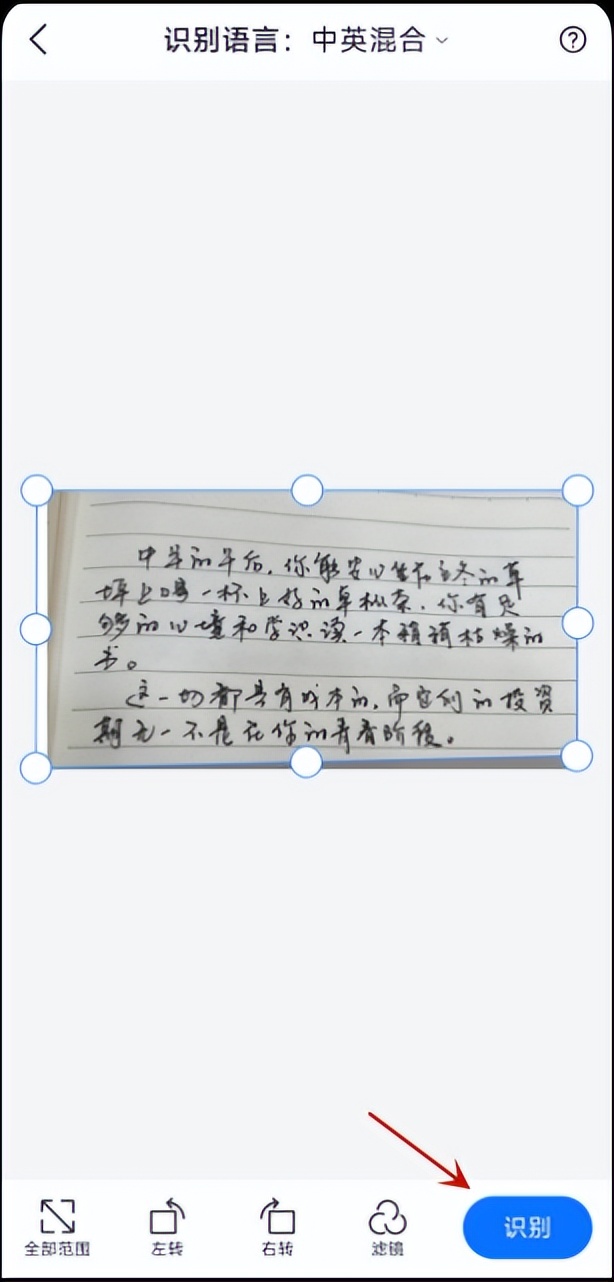 识别语言：中英混合
中年的午后，你能安心坐在的草
坪上喝一杯上好的草枞茶，你有足
够的心境和学识读一本稍稍枯燥的
书。
这一切都是有成本的，而它们的投资
期无一不是在你的青春阶段。
全部范围
左转
右转
滤镜
识别